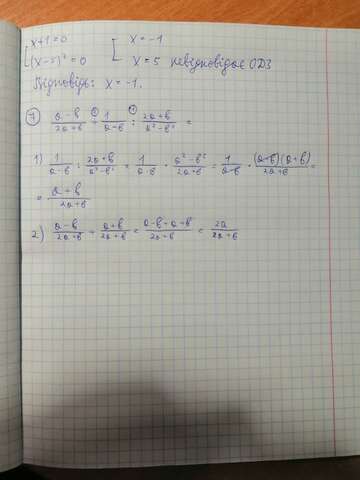 x+1=0 [ x=-1
(x-5)²=0 x=5 невідповідає ОДЗ
Відповідь: x=-1.
⑦ (a-b)/(2a+b) + 1/(a-b) : (2a+b)/(a²-b²) =
1) 1/(a-b) : (2a+b)/(a²-b²) = 1/(a-b) · (a²-b²)/(2a+b) = 1/(a-b) · (a-b)(a+b)/(2a+b) =
= (a+b)/(2a+b)
2) (a-b)/(2a+b) + (a+b)/(2a+b) = (a-b+a+b)/(2a+b) = 2a/(2a+b)